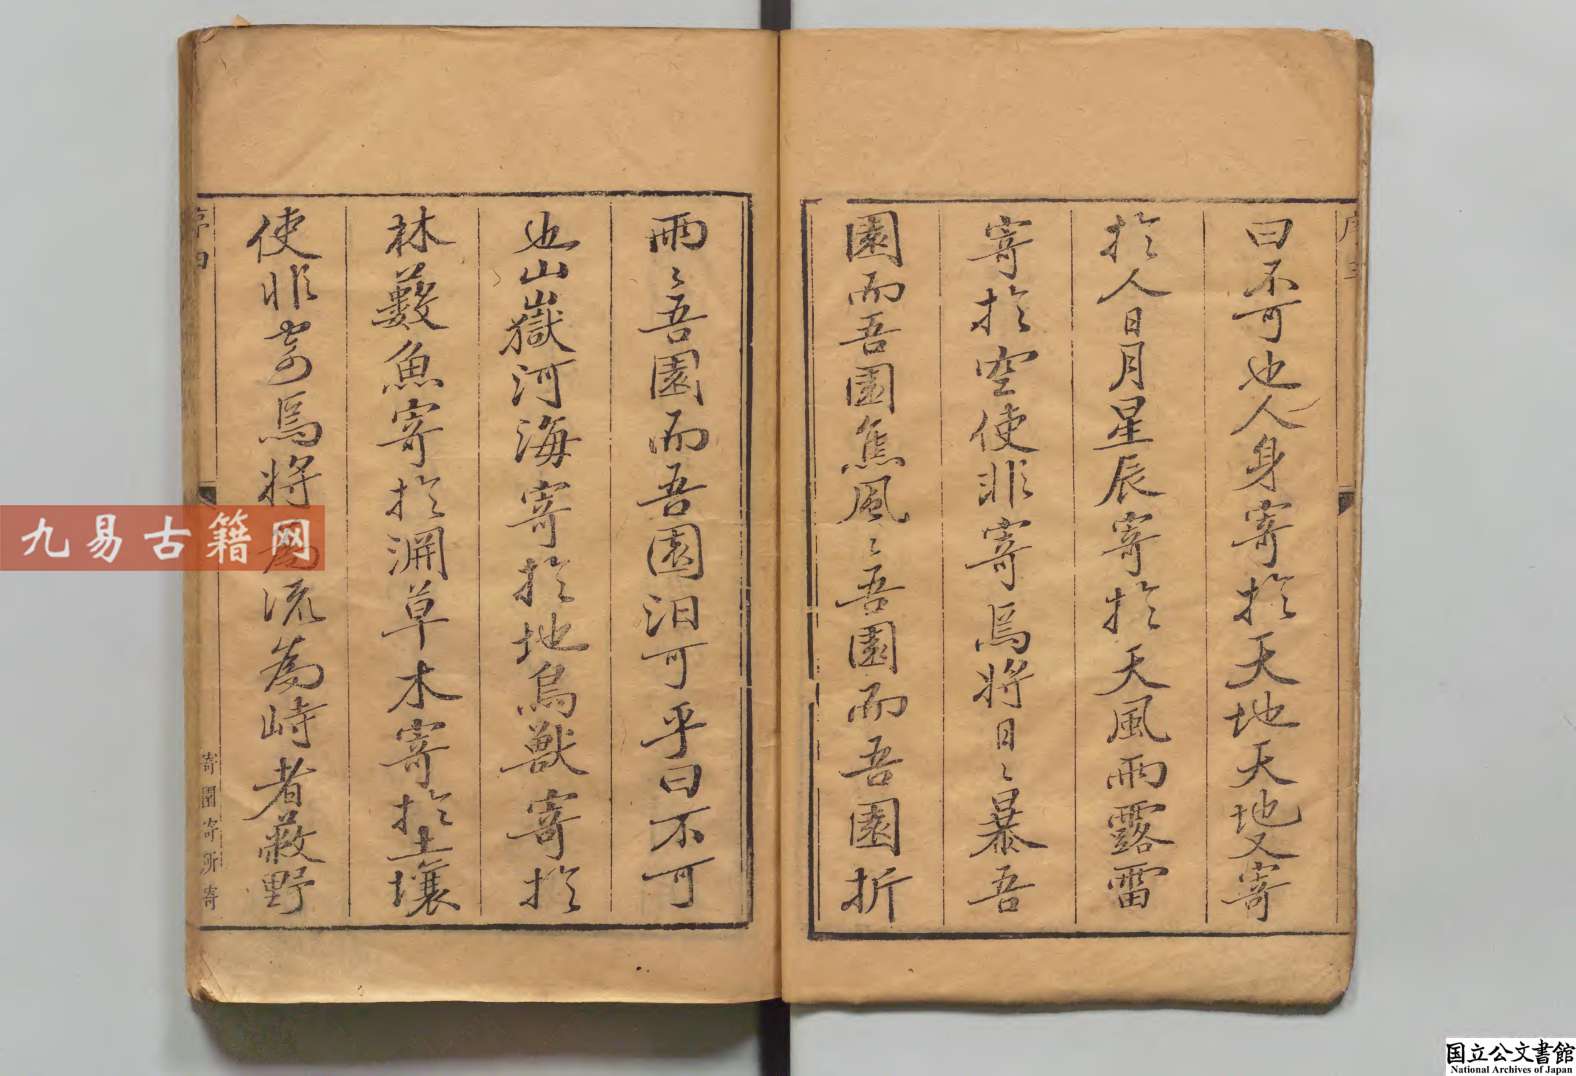 曰不可也人身寄於天地天地又寄
於人日月星辰寄於天風雨露雷
寄於空使非寄焉將日〻暴吾
園而吾園焦風〻吾園而吾園折
雨〻吾園而吾園汨可乎曰不可
也山嶽河海寄於地鳥獸寄於
林藪魚寄於淵草木寄於土壤
使非寄焉將為流為峙者蔽野
序三
序四
寄園寄所寄
九易古籍网
国立公文書館
National Archives of Japan